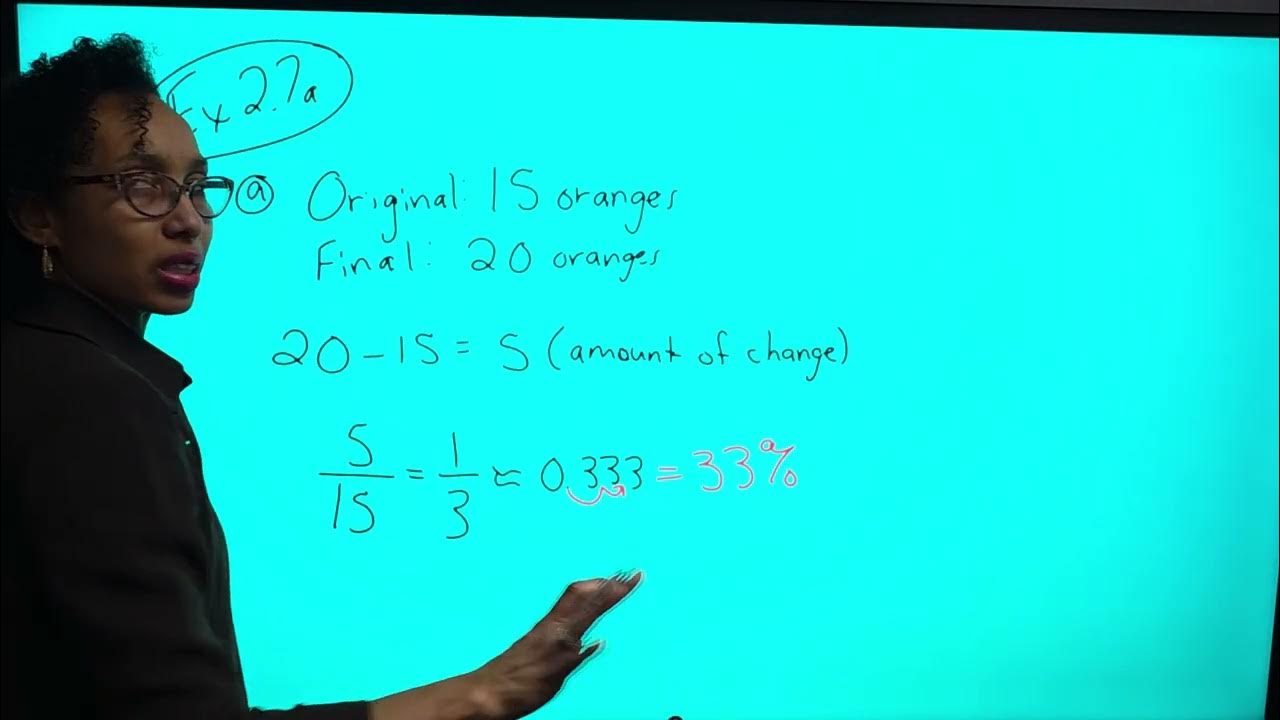 Ex 2.7a
a Original: 15 oranges
Final: 20 oranges
20 - 15 = 5 (amount of change)
5/15 = 1/3 ≈ 0.333 = 33%